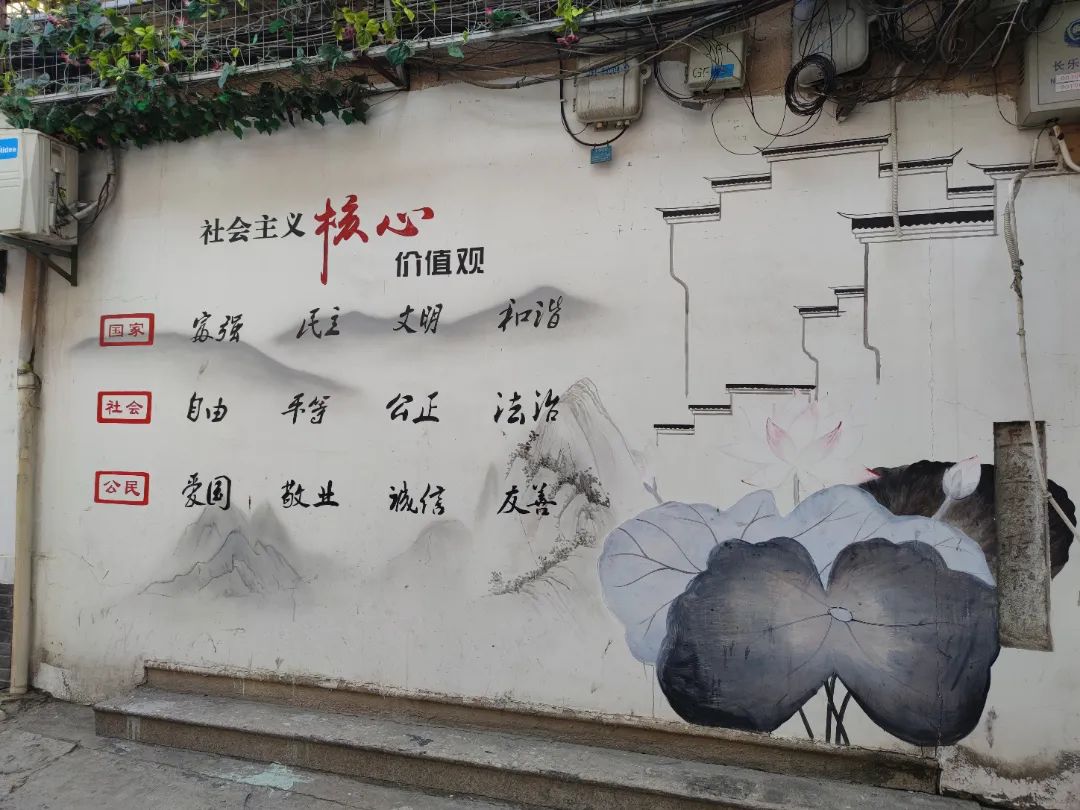 社会主义核心
价值观
国家 富强 民主 文明 和谐
社会 自由 平等 公正 法治
公民 爱国 敬业 诚信 友善
Midea
长乐